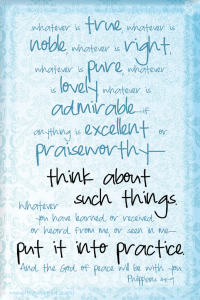 whatever is true, whatever is
noble, whatever is right,
whatever is pure, whatever
is lovely whatever is
admirable—if
anything is excellent or
praiseworthy—
think about
such things.
Whatever
you have learned, or received
or heard from me, or seen in me—
put it into practice.
And the God of peace will be with you
Philippians